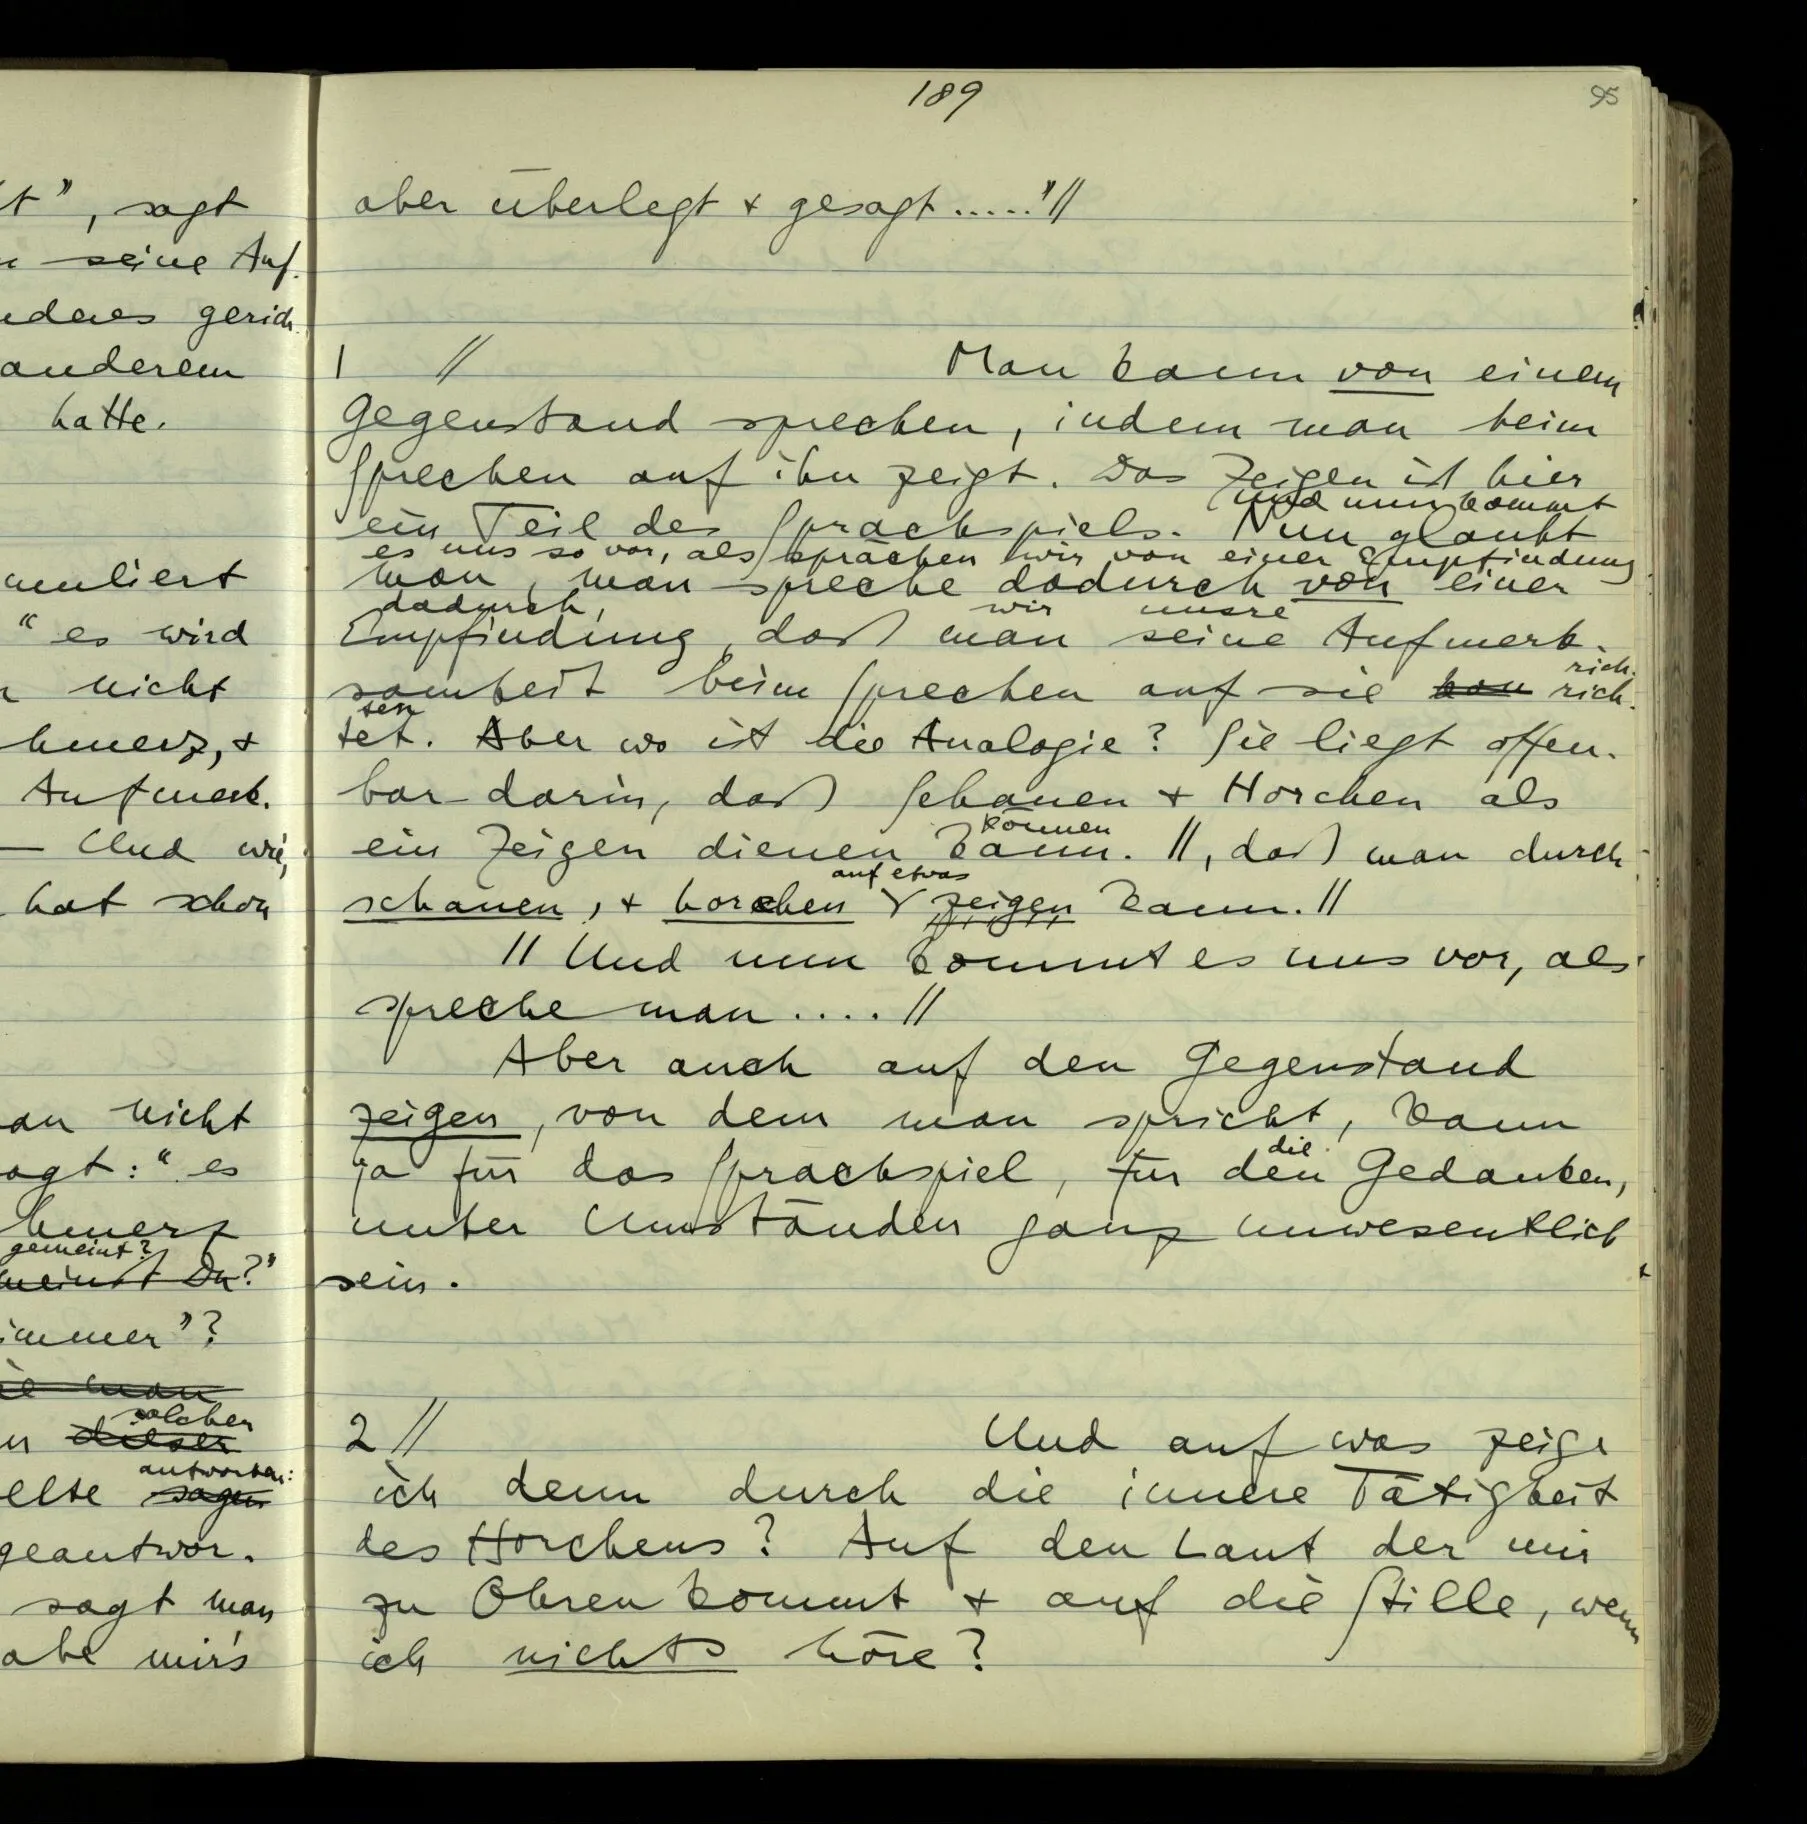 t", sagt
seine Auf-
nderes gerich-
anderem
hatte.
muliert
" es wird
nicht
hmerz, +
Aufmerk-
— Und wie,
hat schon
an nicht
agt: " es
hmerz
gemeint?
meinst Du?"
immer"?
ie man
solchen
dieser
antworten:
elte sagen
geantwor-
sagt man
abe mir's
189
95
aber überlegt + gesagt ....."//
1 // Man kann von einem
Gegenstand sprechen, indem man beim
Sprechen auf ihn zeigt. Das Zeigen ist hier
Und nun kommt
ein Teil des Sprachspiels. Nun glaubt
es uns so vor, als sprächen wir von einer Empfindung
man, man spreche dadurch von einer
dadurch, wir unsre
Empfindung, daß man seine Aufmerk-
rich-
samkeit beim Sprechen auf sie kon rich-
ten
tet. Aber wo ist die Analogie? Sie liegt offen-
bar darin, daß Schauen + Horchen als
können
ein Zeigen dienen kann. //, daß man durch
auf etwas
schauen, + horchen zeigen kann. //
// Und nun kommt es uns vor, als
spreche man .... //
Aber auch auf den Gegenstand
zeigen, von dem man spricht, kann
die
ja für das Sprachspiel, für den Gedanken,
unter Umständen ganz unwesentlich
sein.
2 // Und auf was zeige
ich denn durch die innere Tätigkeit
des Horchens? Auf den Laut der mir
zu Ohren kommt + auf die Stille, wenn
ich nichts höre?